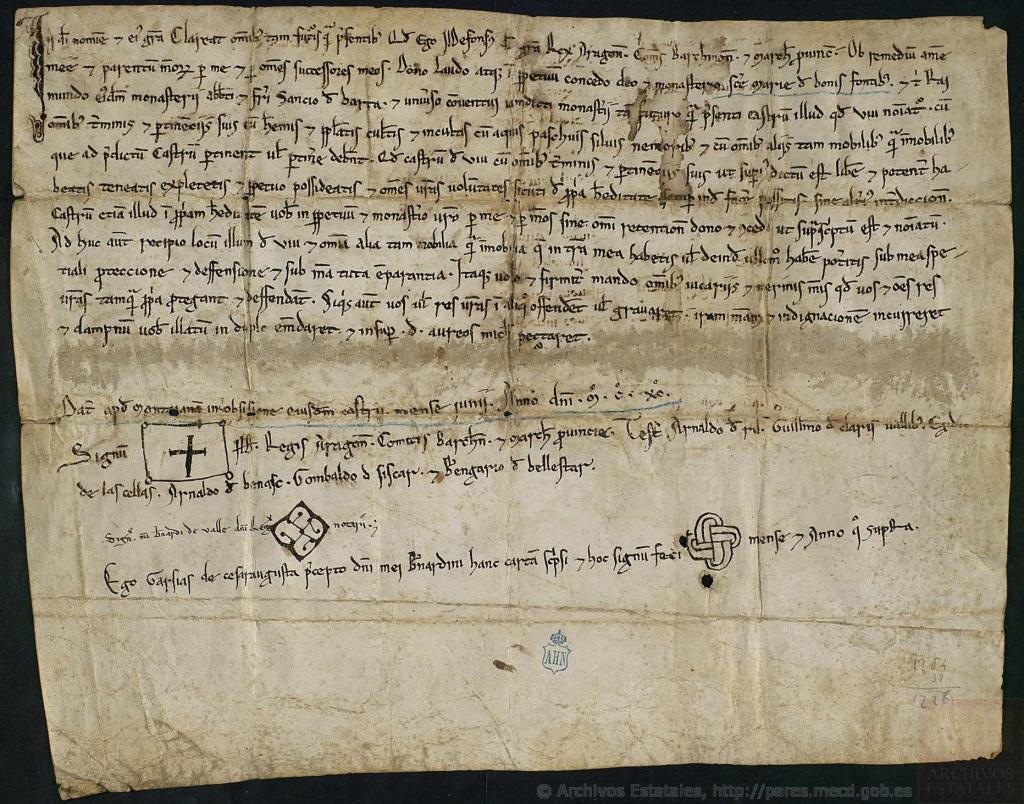 In dei nomine et eius gratia Clareat omnibus tam futuris quam presentibus Quod Ego Ildefonsus dei gratia Rex Aragon. Comes Barchinon. et march. puinc. Ob remedium anime
mee et parentum meorum per me et per omnes successores meos. Dono laudo atque in perpetuum concedo deo et monasterio sancte marie de bonis fontibus. et tibi Rai
mundo eiusdem monasterii abbati et fratri Sancio de barta. et universo conventui iamdicti monasterii tam futuro quam presenti castrum illud quod Vivi nominatur. cum
omnibus terminis et pertinenciis suis cum heremis et populatis cultis et incultis cum aquis paschuis silvis nemoribus et cum omnibus aliis tam mobilibus quam immobilibus
que ad predictum Castrum pertinent vel pertinere debent. Quod castrum de Vivi cum omnibus terminis et pertinenciis suis ut superius dictum est libere et potenter ha
beatis teneatis expletetis et perpetuo possideatis et omnes vestras voluntates sicuti de propria hereditate inde facere possitis sine
Castrum etiam illud in propriam hereditatem vobis in perpetuum et monasterio vestro per me et per meos sine omni retencione dono et concedo ut suprascriptum est et nominatum.
Ad huc autem recipio locum illum de Vivi et omnia alia tam mobilia quam immobilia que in terra mea habetis vel deinde habere poteritis sub mea spe-
tiali proteccione et deffensione et sub mea tuta emparantia. Itaque volo et firmiter mando omnibus vicariis et merinis meis quod vos et omnes res
vestras tamquam propria protegant et deffendant. Siquis autem vos vel res vestras in aliquo offenderet vel gravaret. iram meam et indignacionem incurreret
et dampnum vobis illatum in duplo emendaret. et insuper .d. aureos michi pectaret.
Dat. apud in obsidione eiusdem castri. mense iunii. Anno dni. M. C. XC.
Signum Regis Aragon. Comitis Barchin. et march. provincie. Testes Arnaldo de Guillmo de claris vallibus.
de las cellas. Arnaldo de benasc. Gombaldo de siscar. et Berengario de bellestar.
Signum bernardi de valle dni Regis notarii.
Ego Garsias de cesaraugusta precepto dni mei Bernardini hanc cartam scripsi et hoc signum feci mense et Anno quo supra.
AHN
1264
1226
ARCHIVOS
ESTATALES
© Archivos Estatales, http://pares.mecd.gob.es